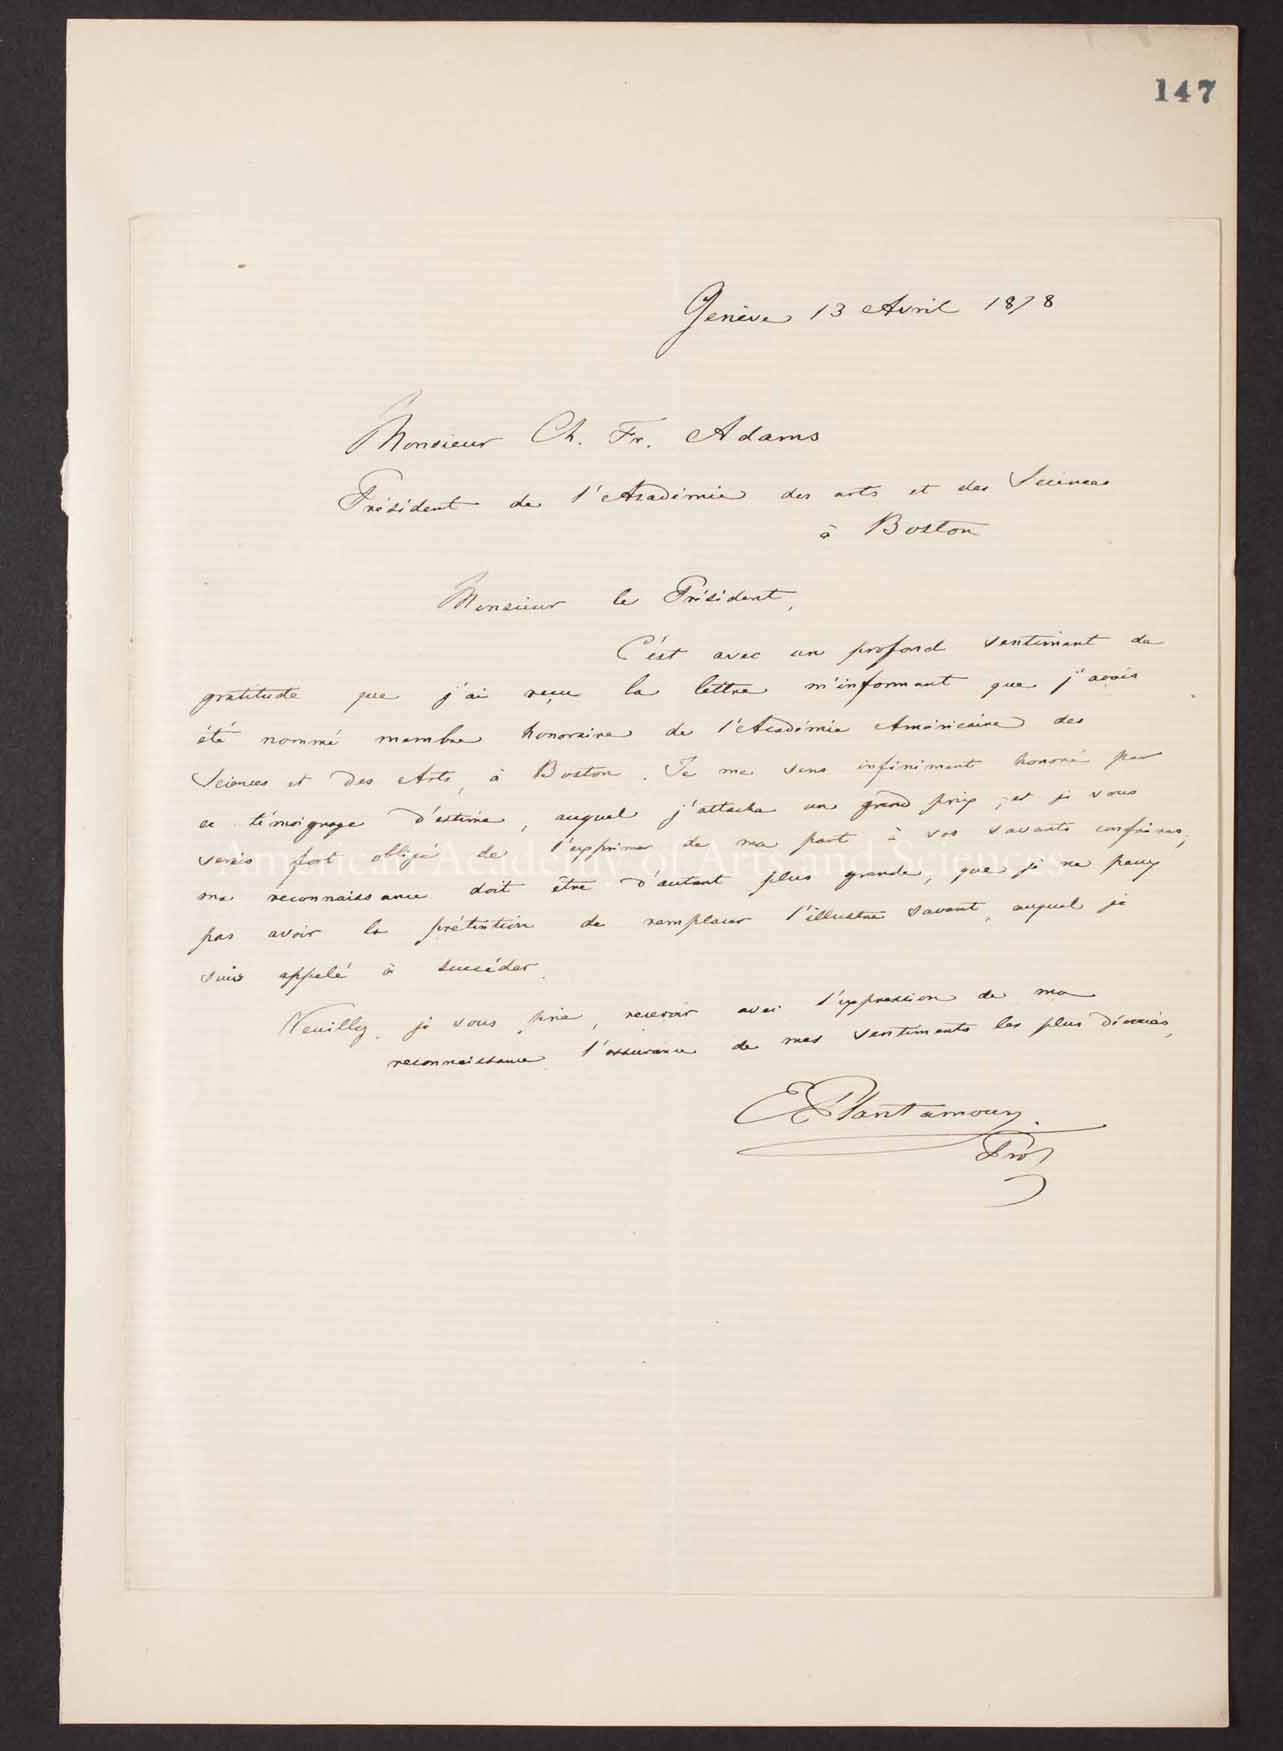 147
Genève 13 Avril 1878
Monsieur Ch. Fr. Adams
Président de l'Académie des arts et des Sciences
à Boston
Monsieur le Président,
C'est avec un profond sentiment de
gratitude que j'ai reçu la lettre m'informant que j'avais
été nommé membre honoraire de l'Académie Américaine des
Sciences et des Arts, à Boston. Je me sens infiniment honoré par
ce témoignage d'estime, auquel j'attache un grand prix, et je vous
serais fort obligé de l'exprimer de ma part à vos savants confrères;
American Academy of Arts and Sciences
ma reconnaissance doit être d'autant plus grande, que je ne peux
pas avoir la prétention de remplacer l'illustre savant, auquel je
suis appelé à succéder.
Veuillez, je vous prie, recevoir avec l'expression de ma
reconnaissance l'assurance de mes sentiments les plus dévoués,
E Plantamour.
Prof